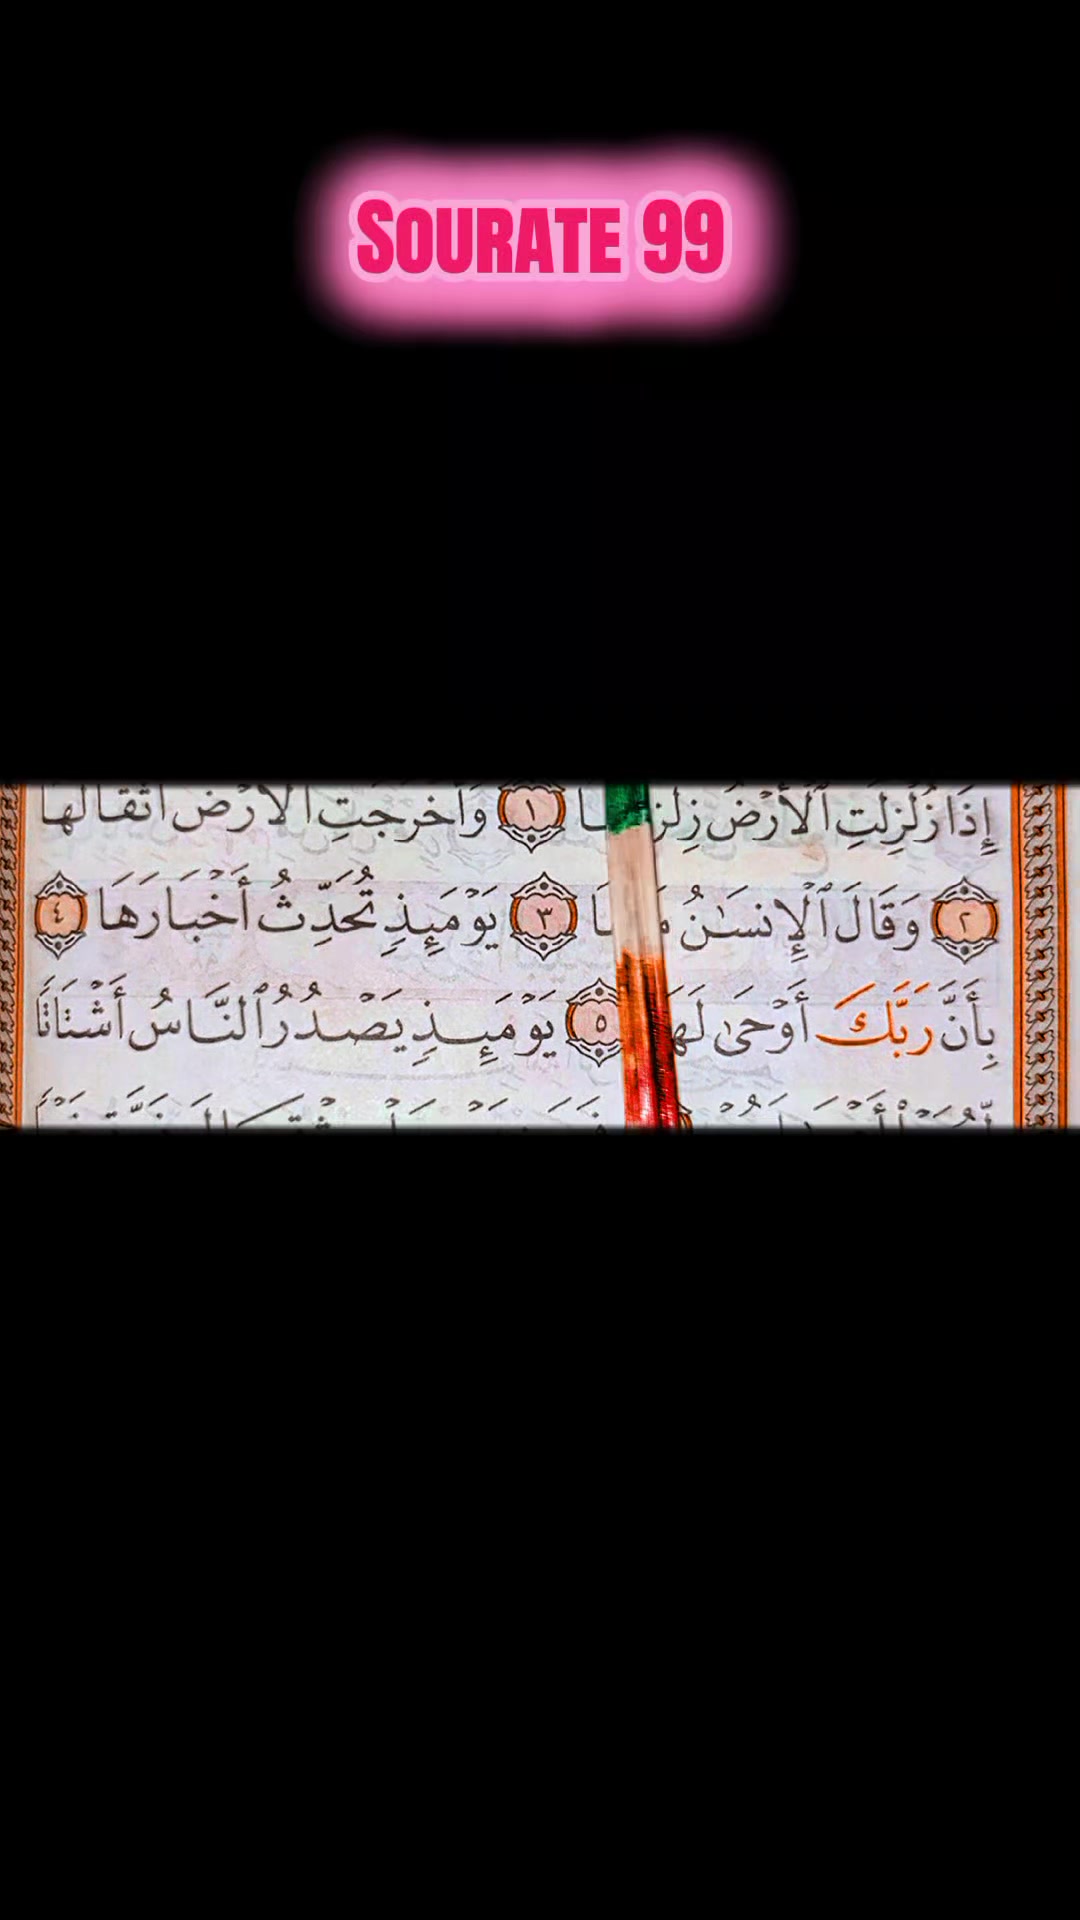 SOURATE 99
إِذَا زُلْزِلَتِ ٱلْأَرْضُ ١ وَأَخْرَجَتِ ٱلْأَرْضُ أَثْقَالَهَا
٢ وَقَالَ ٱلْإِنسَٰنُ ٣ يَوْمَئِذٍ تُحَدِّثُ أَخْبَارَهَا ٤
بِأَنَّ رَبَّكَ أَوْحَىٰ لَهَا ٥ يَوْمَئِذٍ يَصْدُرُ ٱلنَّاسُ أَشْتَاتًا